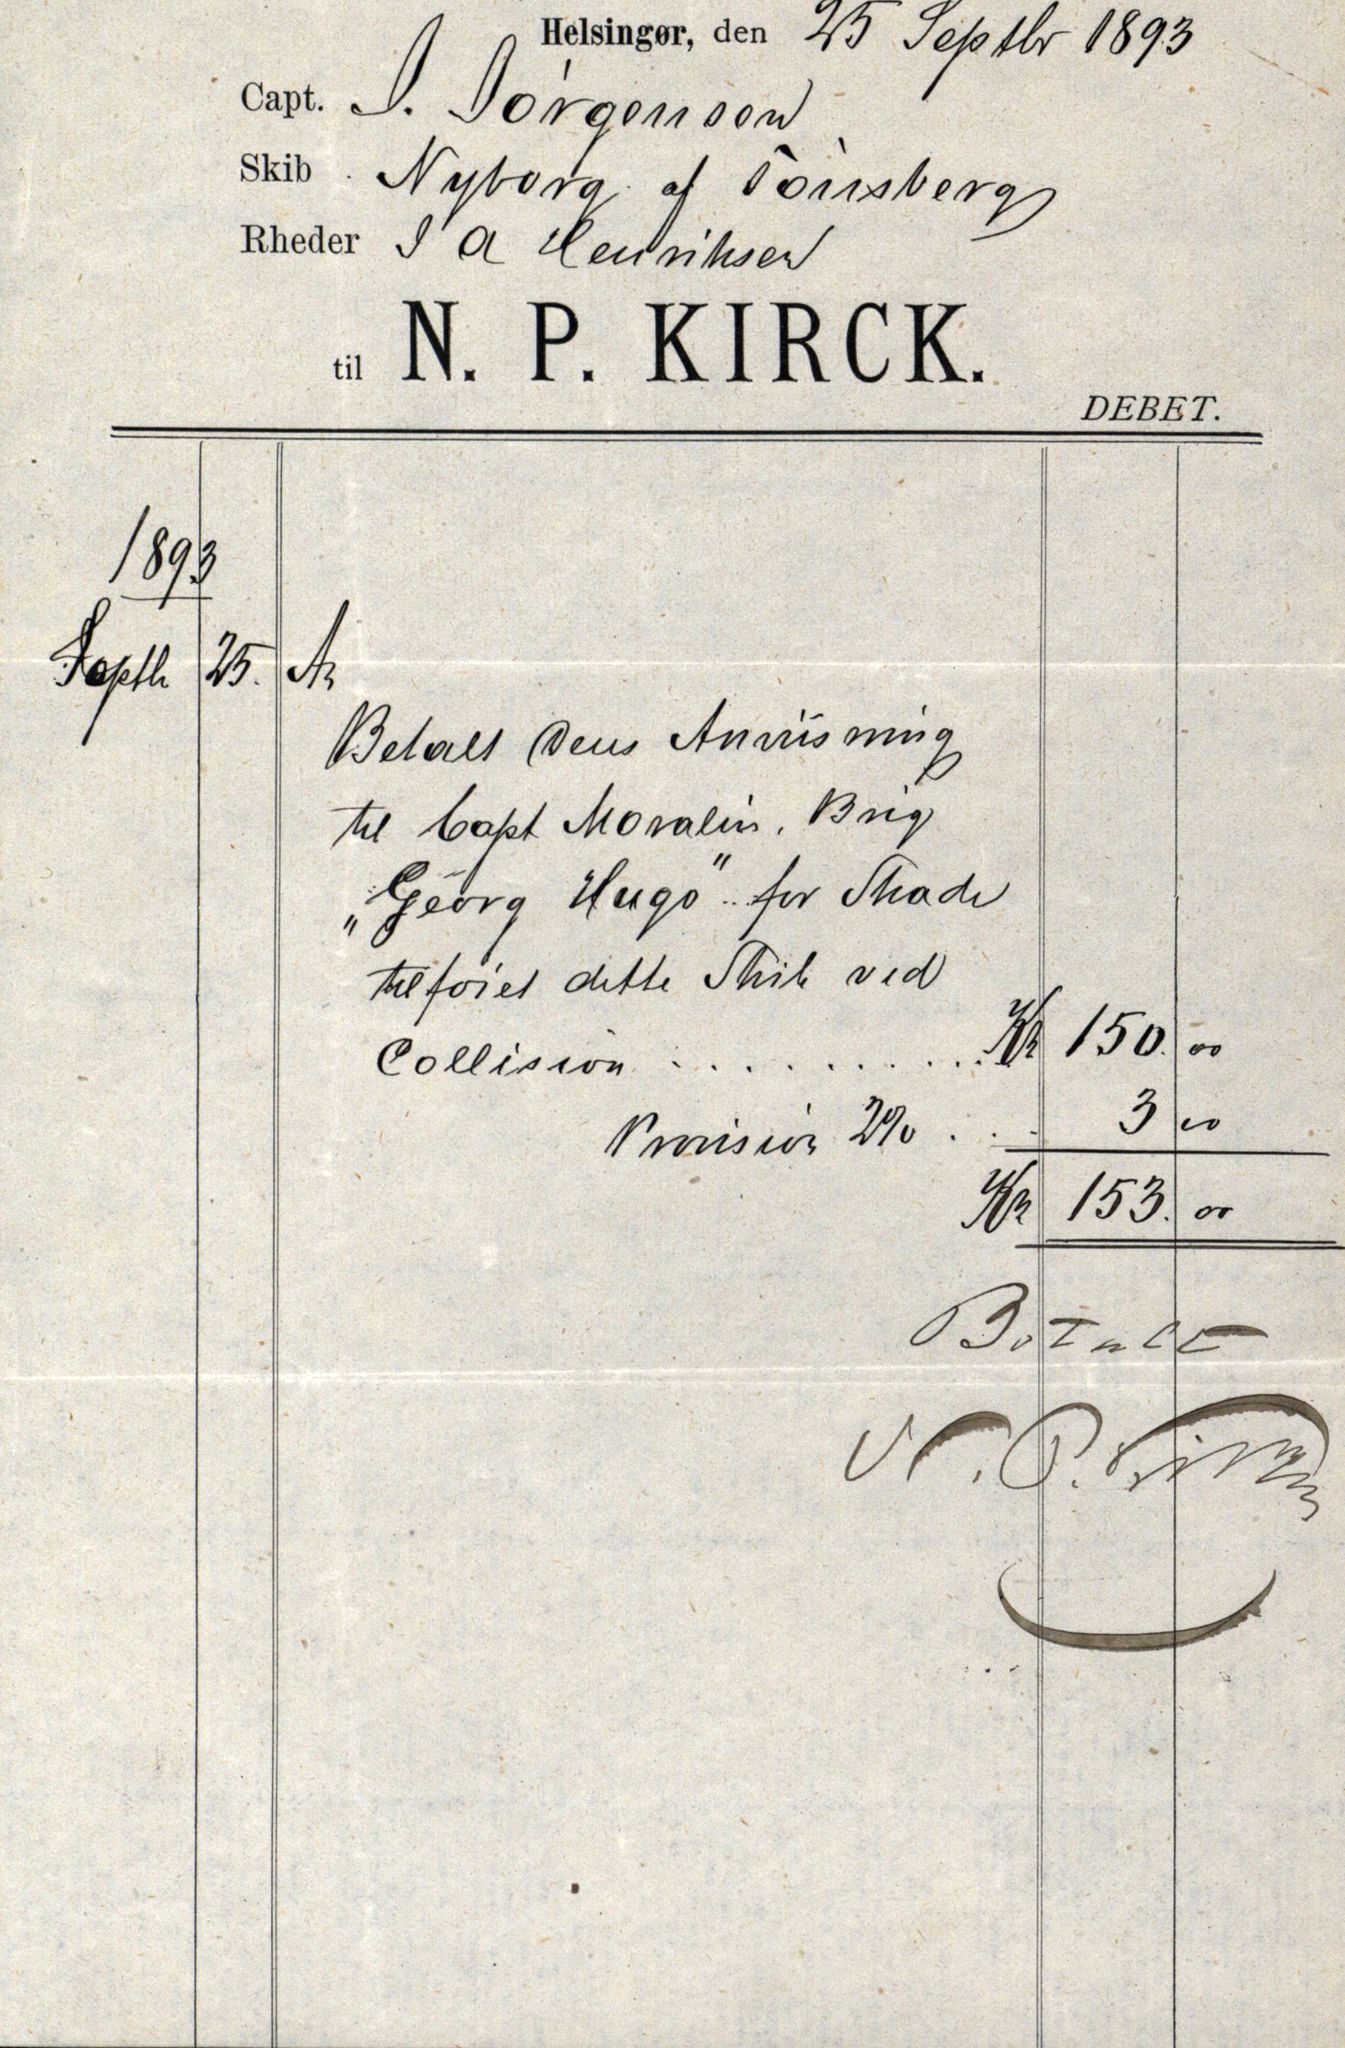 Helsingør, den 25 Septbr 1893
Capt. J. Jörgensen
Skib Nyborg af Tönsberg
Rheder J A Henriksen
til N. P. KIRCK.
DEBET.
1893
Septb 25. An
Betalt Deres Anviisning
til Capt Moralin, Brig
„Georg Hugo" for Skade
tilföiet dette Skib ved
Collision . . . . . . . . . . Kr 150. 00
Provision 2% . . . 3 00
Kr 153. 00
Betalt
N. P. Kirck